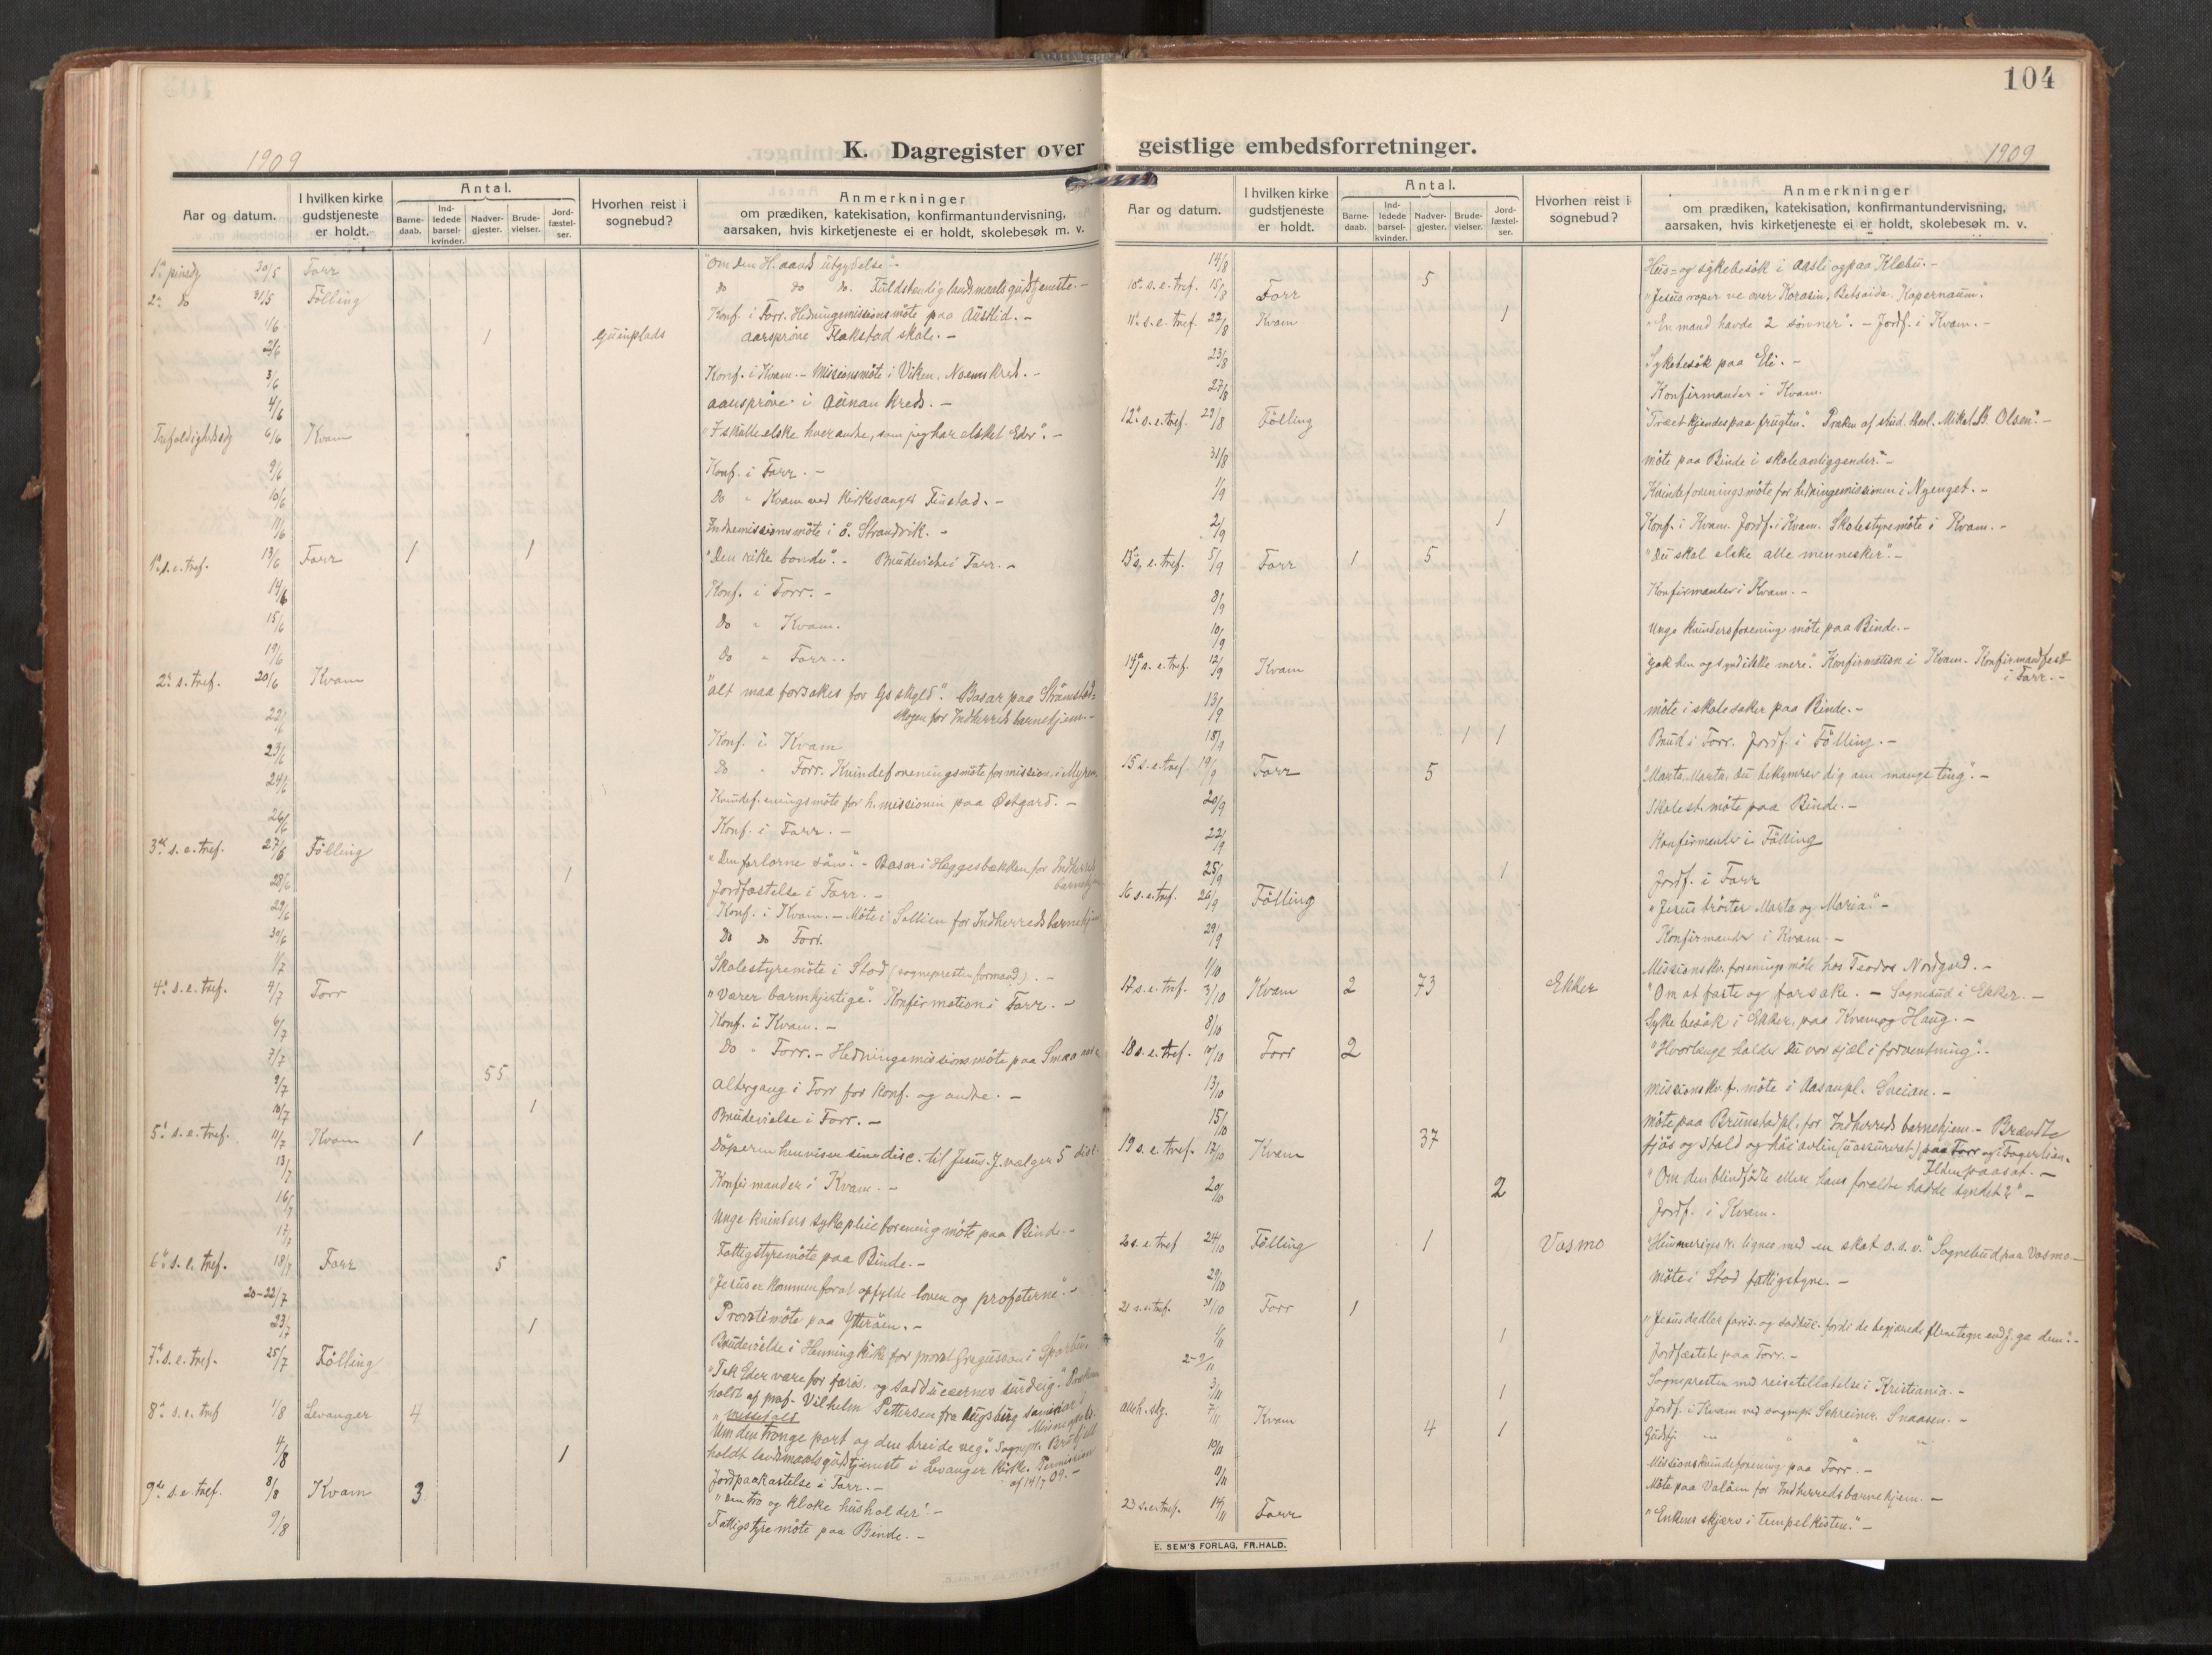 104
K. Dagregister over
1909
Aar og datum.
I hvilken kirke gudstjeneste er holdt.
Antal.
Barne-daab.
Ind-ledede barsel-kvinder.
Nadver-gjester.
Brude-vielser.
Jord-fæstel-ser.
Hvorhen reist i sognebud?
Anmerkninger
om prædiken, katekisation, konfirmantundervisning,
aarsaken, hvis kirketjeneste ei er holdt, skolebesøk m. v.
30/5 Forr "Om den H. aands utgydelse".
2. do 31/5 Følling do do do. Fuldstendig landsmaals gudstjeneste.-
1/6 Konf. i Forr. Hedningemissionsmöte paa Austlid.-
2/6 1 Aarspröve Flekstad skole.-
3/6 Konf. i Kvam.- Missionsmöte i Viken,
4/6 Aarspröve i kreds.-
6/6 Kvam "I skulle elske hverandre, som jeg har elsket Eder".-
9/6 Konf. i Forr.-
10/6 Do " Kvam ved kirkesanger
11/6 Indremissionsmöte i ö. Strandvik.-
1. s. e. tref. 13/6 Forr 1 1 "Den rike bonde".- Brudevielse i Forr.-
14/6 Konf. i Forr.-
15/6 Do " Kvam.
19/6 Do " Forr.-
2. s. e. tref. 20/6 Kvam "Alt maa forsakes for Gs skyld". Basar paa
skogen for Indherreds barnehjem.-
22/6 Konf. i Kvam
23/6 Do " Forr. Kvindeforeningsmöte for mission i Myren.
24/6 möte for h. missionen paa Østgard.-
26/6 Konf. i Forr.-
3. s. e. tref. 27/6 Følling "Den forlorne sön".- Basar i Heggesbakken for Indherreds
28/6 1 Jordfæstelse i Forr.-
29/6 Konf. i Kvam.- Möte i Sellien for Indherreds barnehj
30/6 Do do Forr.
1/7 Skolestyremöte i Stod (sognepresten formand).-
4. s. e. tref. 4/7 Forr "Værer barmhjertige". Konfirmation i Forr.-
6/7 Konf. i Kvam.-
7/7 Do " Forr.- Hedningemissionsmöte paa
9/7 55 Altergang i Forr for konf. og andre.-
10/7 1 Brudevielse i Forr.-
5. s. e. tref. 11/7 Kvam 1 Döperen henviser sine disc. til Jesus. J. vælger 5 disc.
13/7 Konfirmander i Kvam.-
16/7 Unge kvinders sykepleieforening möte paa Binde.-
17/7 Fattigstyremöte paa Binde.-
6. s. e. tref. 18/7 Forr 5 "Jesus er kommen for at opfylde loven og profeterne".-
20-22/7 Provstimöte paa Ytteröen.-
23/7 1 Brudevielse i Henning kirke for provst i Sparbu.-
7. s. e. tref. 25/7 Følling "Tak Eder vare for faris. og sadducæernes surdeig".
holdt af prof. Vilhelm Pettersen fra Augsburg seminar
8. s. e. tref 1/8 Levanger 4 "Um den tronge port og den breide veg". Sognepr.
holdt landsmaalsgudstjeneste i Levanger kirke. Permission
af 14/7 09.-
4/8 1 Jordpaakastelse i Forr.-
9de s. e. tref. 8/8 Kvam 3 "Den tro og kloke husholder".-
9/8 Fattigstyremöte paa Binde.-
geistlige embedsforretninger.
1909
Aar og datum.
I hvilken kirke gudstjeneste er holdt.
Antal.
Barne-daab.
Ind-ledede barsel-kvinder.
Nadver-gjester.
Brude-vielser.
Jord-fæstel-ser.
Hvorhen reist i sognebud?
Anmerkninger
om prædiken, katekisation, konfirmantundervisning,
aarsaken, hvis kirketjeneste ei er holdt, skolebesøk m. v.
14/8 Hus- og sykebesök i Aasli og paa Klebu.-
10. s. e. tref. 15/8 Forr 5 "Jesus roper ve over Korasin, Betsaida, Kapernaum."
11. s. e. tref. 22/8 Kvam 1 "En mand havde 2 sönner".- Jordf. i Kvam.-
23/8 Sykebesök paa Eli.-
27/8 Konfirmander i Kvam.
12. s. e. tref. 29/8 Følling "Træet kjendes paa frugten". Præken af stud. theol. Mikal B. Olsen.-
31/8 möte paa Binde i skoleanliggender.-
1/9 Kvindeforeningsmöte for hedningemissionen i Nyenget.-
2/9 1 Konf. i Kvam. Jordf. i Kvam. Skolestyremöte i Kvam.-
13. s. e. tref. 5/9 Forr 1 5 "Du skal elske alle mennesker".-
8/9 Konfirmander i Kvam.-
10/9 Unge kvindersforening möte paa Binde.-
14. s. e. tref. 12/9 Kvam "Gak hen og synd ikke mere". Konfirmation i Kvam. Konfirmandfest
i Forr.-
13/9 möte i skolesaker paa Binde.-
18/9 1 1 Brud i Forr. Jordf. i Følling.-
15 s. e. tref. 19/9 Forr 5 "Marta, Marta, du bekymrer dig om mange ting".-
20/9 Skolest.möte paa Binde.-
22/9 Konfirmander i Følling
25/9 1 Jordf. i Forr
16 s. e. tref. 26/9 Følling "Jesus tröster Marta og Maria".-
29/9 Konfirmander i Kvam.-
1/10 Missionskv.forenings möte hos Teodor Nordgard.-
17 s. e. tref. 3/10 Kvam 2 73 Ekker "Om at faste og forsake.- Sognebud i Ekker.-
8/10 Sykebesök i Ekker, paa Kvam og Haug.-
18 s. e. tref. 10/10 Forr 2 "Hvorlenge holder du vor sjæl i forventning".-
13/10 Missionskv.f. möte i Aasanpl.
15/10 Möte paa Brunstadpl. for Indherreds barnehjem.- Brændte
fjös og stald og (uassureret) paa Forr
Ilden paasat.-
19 s. e. tref. 17/10 Kvam 37 "Om den blindfödte eller hans forældre hadde syndet?"-
20/10 2 Jordf. i Kvam.
20 s. e. tref 24/10 Følling 1 Vosmo Himmeriges r. lignes med en skat o.s.v." Sognebud paa Vosmo-
29/10 Möte i Stod fattigstyre.-
21 s. e. tref. 31/10 Forr 1 "Jesus dadler faris. og sadduc. fordi de begjærede flere tegn
1/11 1 Jordfæstelse paa Forr.-
2-9/11 Sognepresten med reisetillatelse i Kristiania.-
3/11 1 Jordf. i Kvam ved sognepr. Schreiner, Snaasen.-
alleh. 7/11 Kvam 4 1 Gudstj. " " "
10/11 Missionskvindeforening paa Forr.-
11/11 Möte paa Valöen for Indherreds barnehjem.-
23 s. e. tref. 14/11 Forr "Enkens skjærv i tempelkisten".-
E. SEM'S FORLAG, FR.HALD.